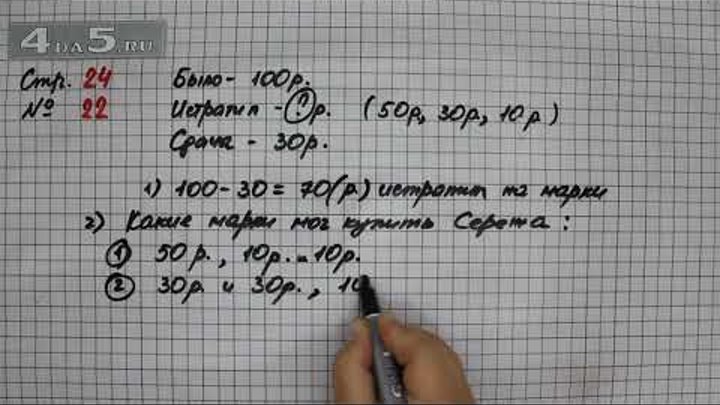 4DA5.RU
Стр. 24 Было - 100р.
№ 22 Истратил - ? р. (50р, 30р, 10р)
Сдача - 30р.
1) 100 - 30 = 70(р.) истратил на марки
2) Какие марки мог купить Серёжа:
1 50 р., 10р. и 10р.
2 30р. и 30р., 10